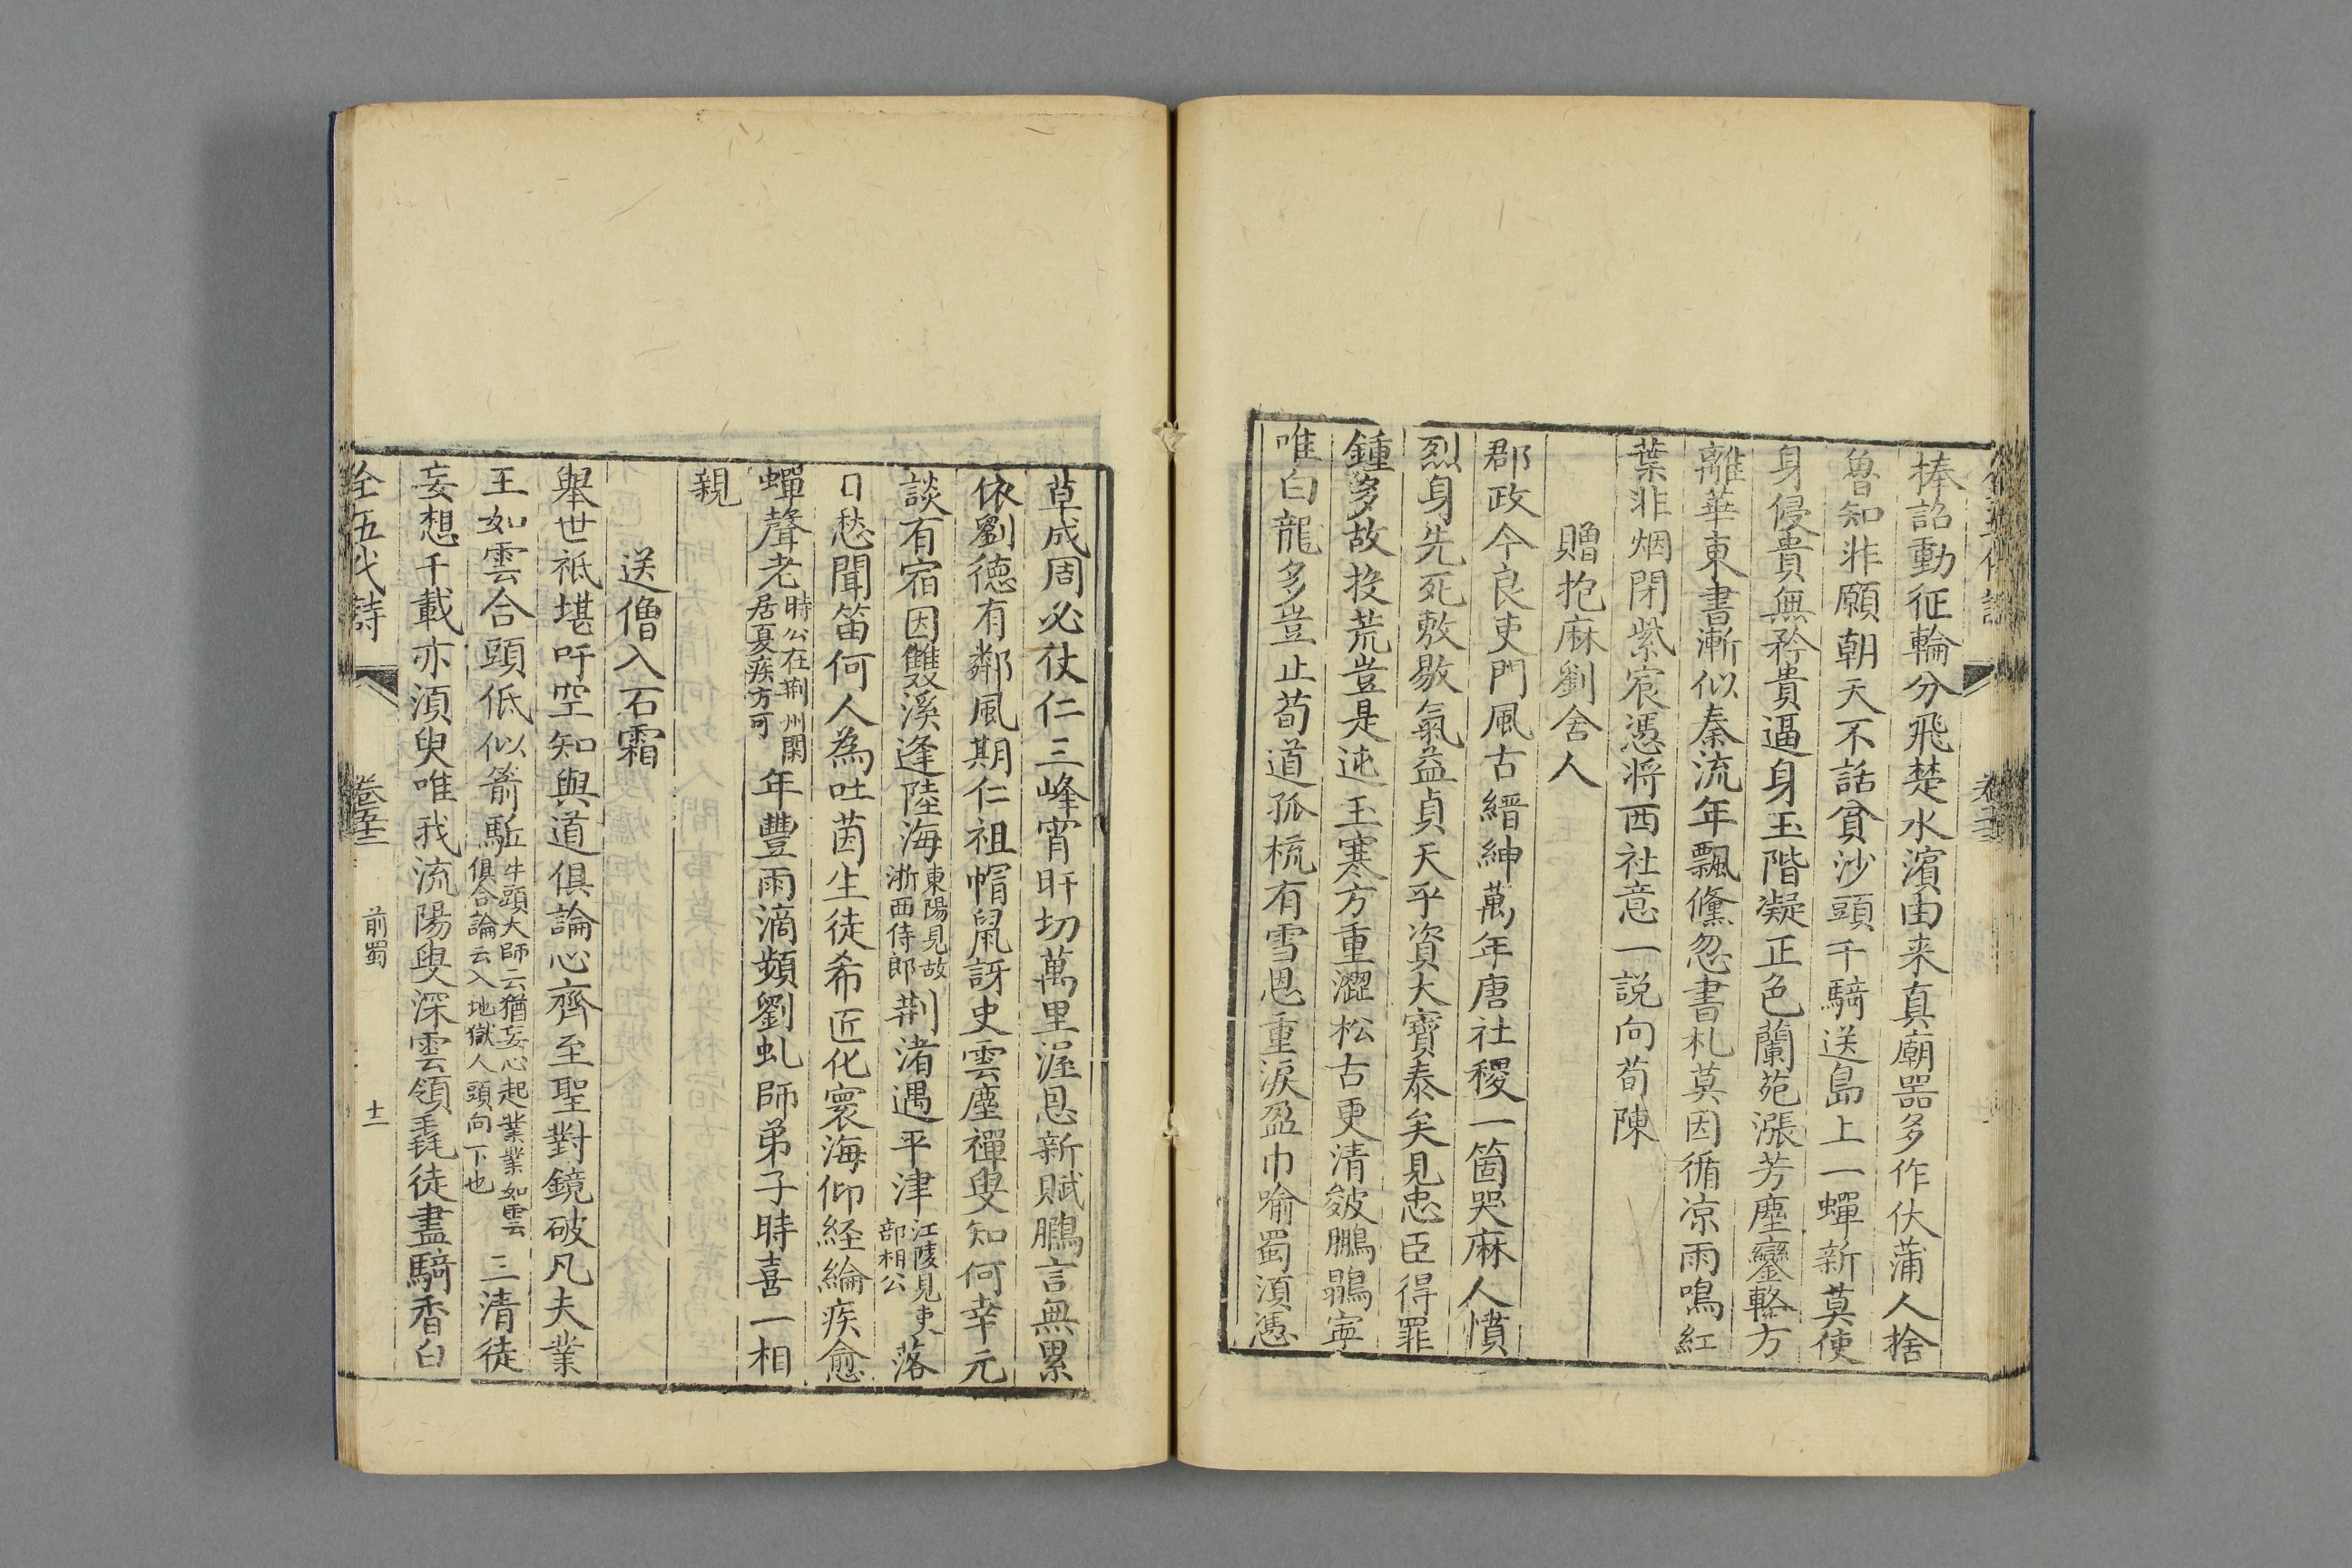 捧詔動征輪分飛楚水濱由来真廟器多作伏蒲人捨
魯知非願朝天不話貧沙頭千騎送島上一蟬新莫使
身侵貴無矜貴逼身玉階凝正色蘭苑漲芳塵鑾輅方
離華車書漸似秦流年飄儵忽書札莫因循凉雨鳴紅
葉非烟閉紫宸憑將西社意一説向荀陳
贈抱麻劉舍人
郡政今良吏門風古縉紳萬年唐社稷一箇哭麻人憤
烈身先死敷敭氣益貞天乎資大寶泰矣見忠臣得罪
鍾多故投荒豈是迍玉寒方重澀松古更清皴鵬鶚寜
唯白龍多豈止荀道孤梳有雪恩重淚盈巾喻蜀湏憑
草成周必仗仁三峰宵旰切萬里渥恩新賦鵩言無累
依劉德有鄰風期仁祖帽鼠訝史雲塵禪叟知何幸元
談有宿因雙溪逢陸海東陽見故浙西侍郎荆渚遇平津江陵見吏部相公落
日愁聞笛何人為吐茵生徒希匠化寰海仰経綸疾愈
蟬聲老時公在荆州閑居夏疾方可年豐雨滴頻劉虬師弟子時喜一相
親
送僧入石霜
舉世祇堪吁空知與道俱論心齊至聖對鏡破凡夫業
王如雲合頭低似箭駈牛頭大師云猶妄心起業業如雲俱合論云入地獄人頭向下也三清徒
妄想千載亦湏臾唯我流陽叟深雲領毳徒盡騎香白
全五代詩 卷五 前蜀 十二